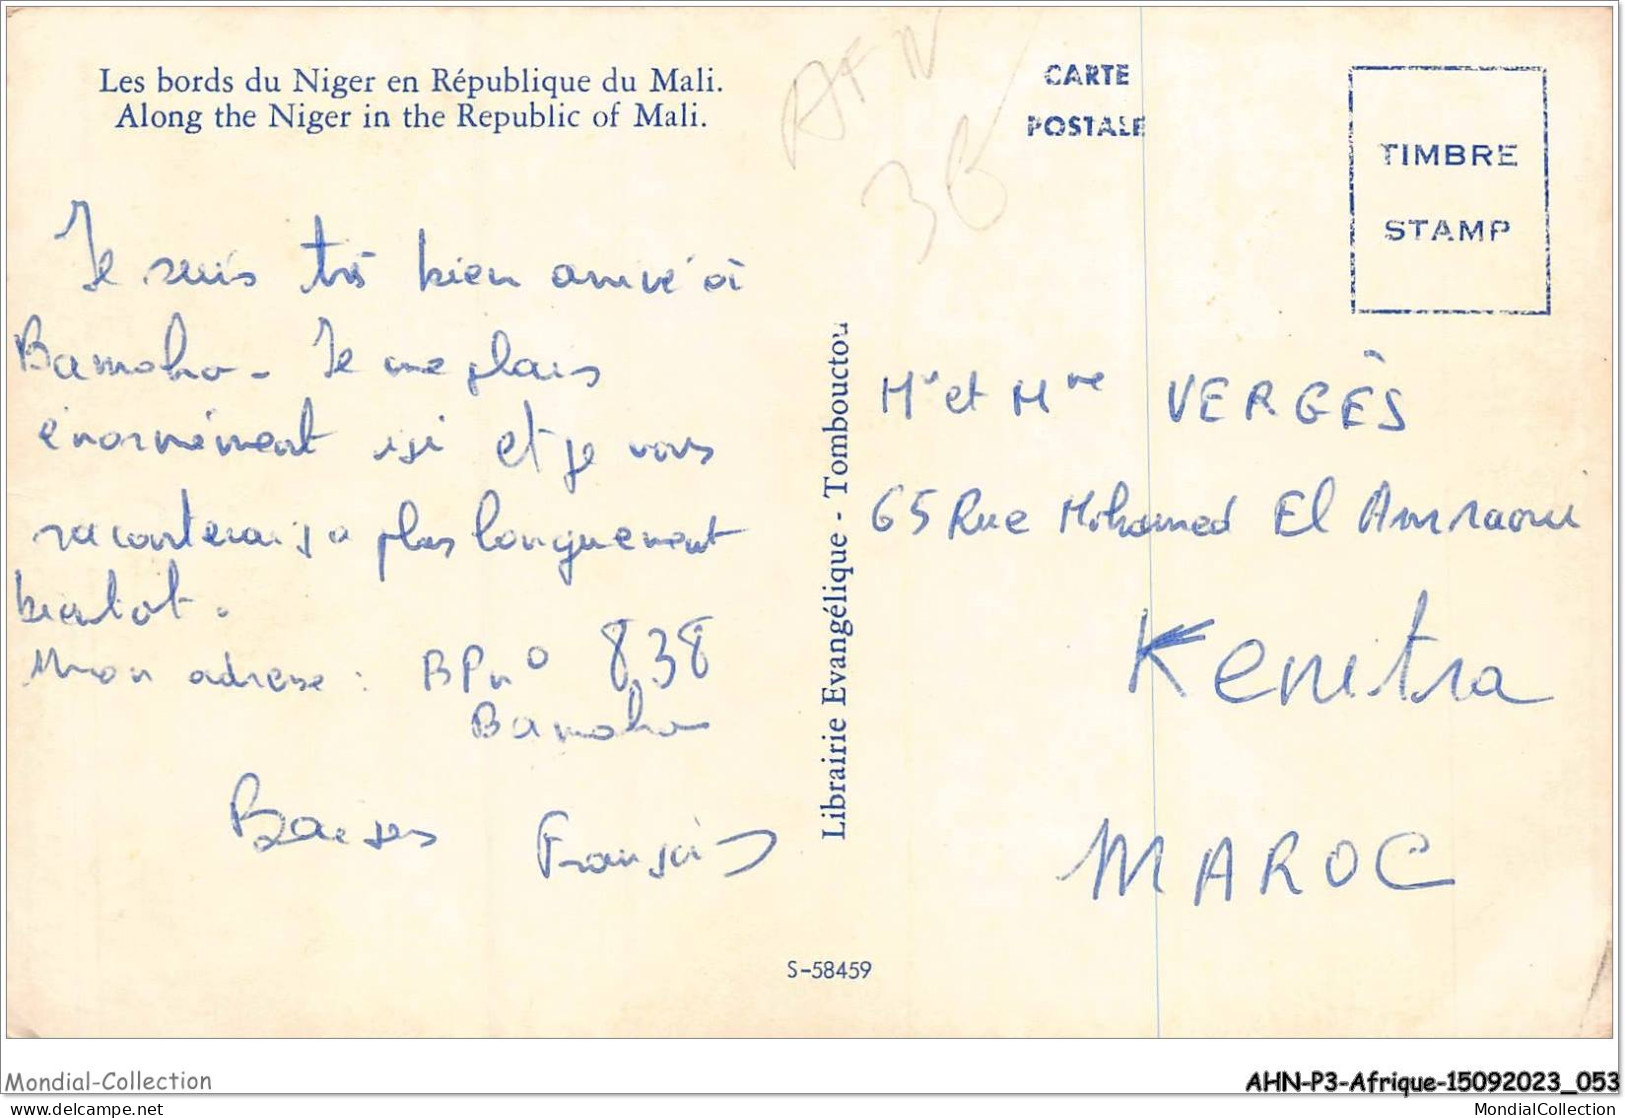 Les bords du Niger en République du Mali.
Along the Niger in the Republic of Mali.
AFN
36
CARTE
POSTALE
TIMBRE
STAMP
Je suis très bien arrivé à
Bamako - Je me plais
énormément ici et je vous
raconterai ça plus longuement
bientot.
Mon adresse : BP n° 838
Bamako
Baises François
Librairie Evangélique - Tombouctou
Mr et Mme VERGÈS
65 Rue Mohamed El Amraoui
Kenitra
MAROC
S-58459
Mondial-Collection
AHN-P3-Afrique-15092023_053
delcampe.net
MondialCollection